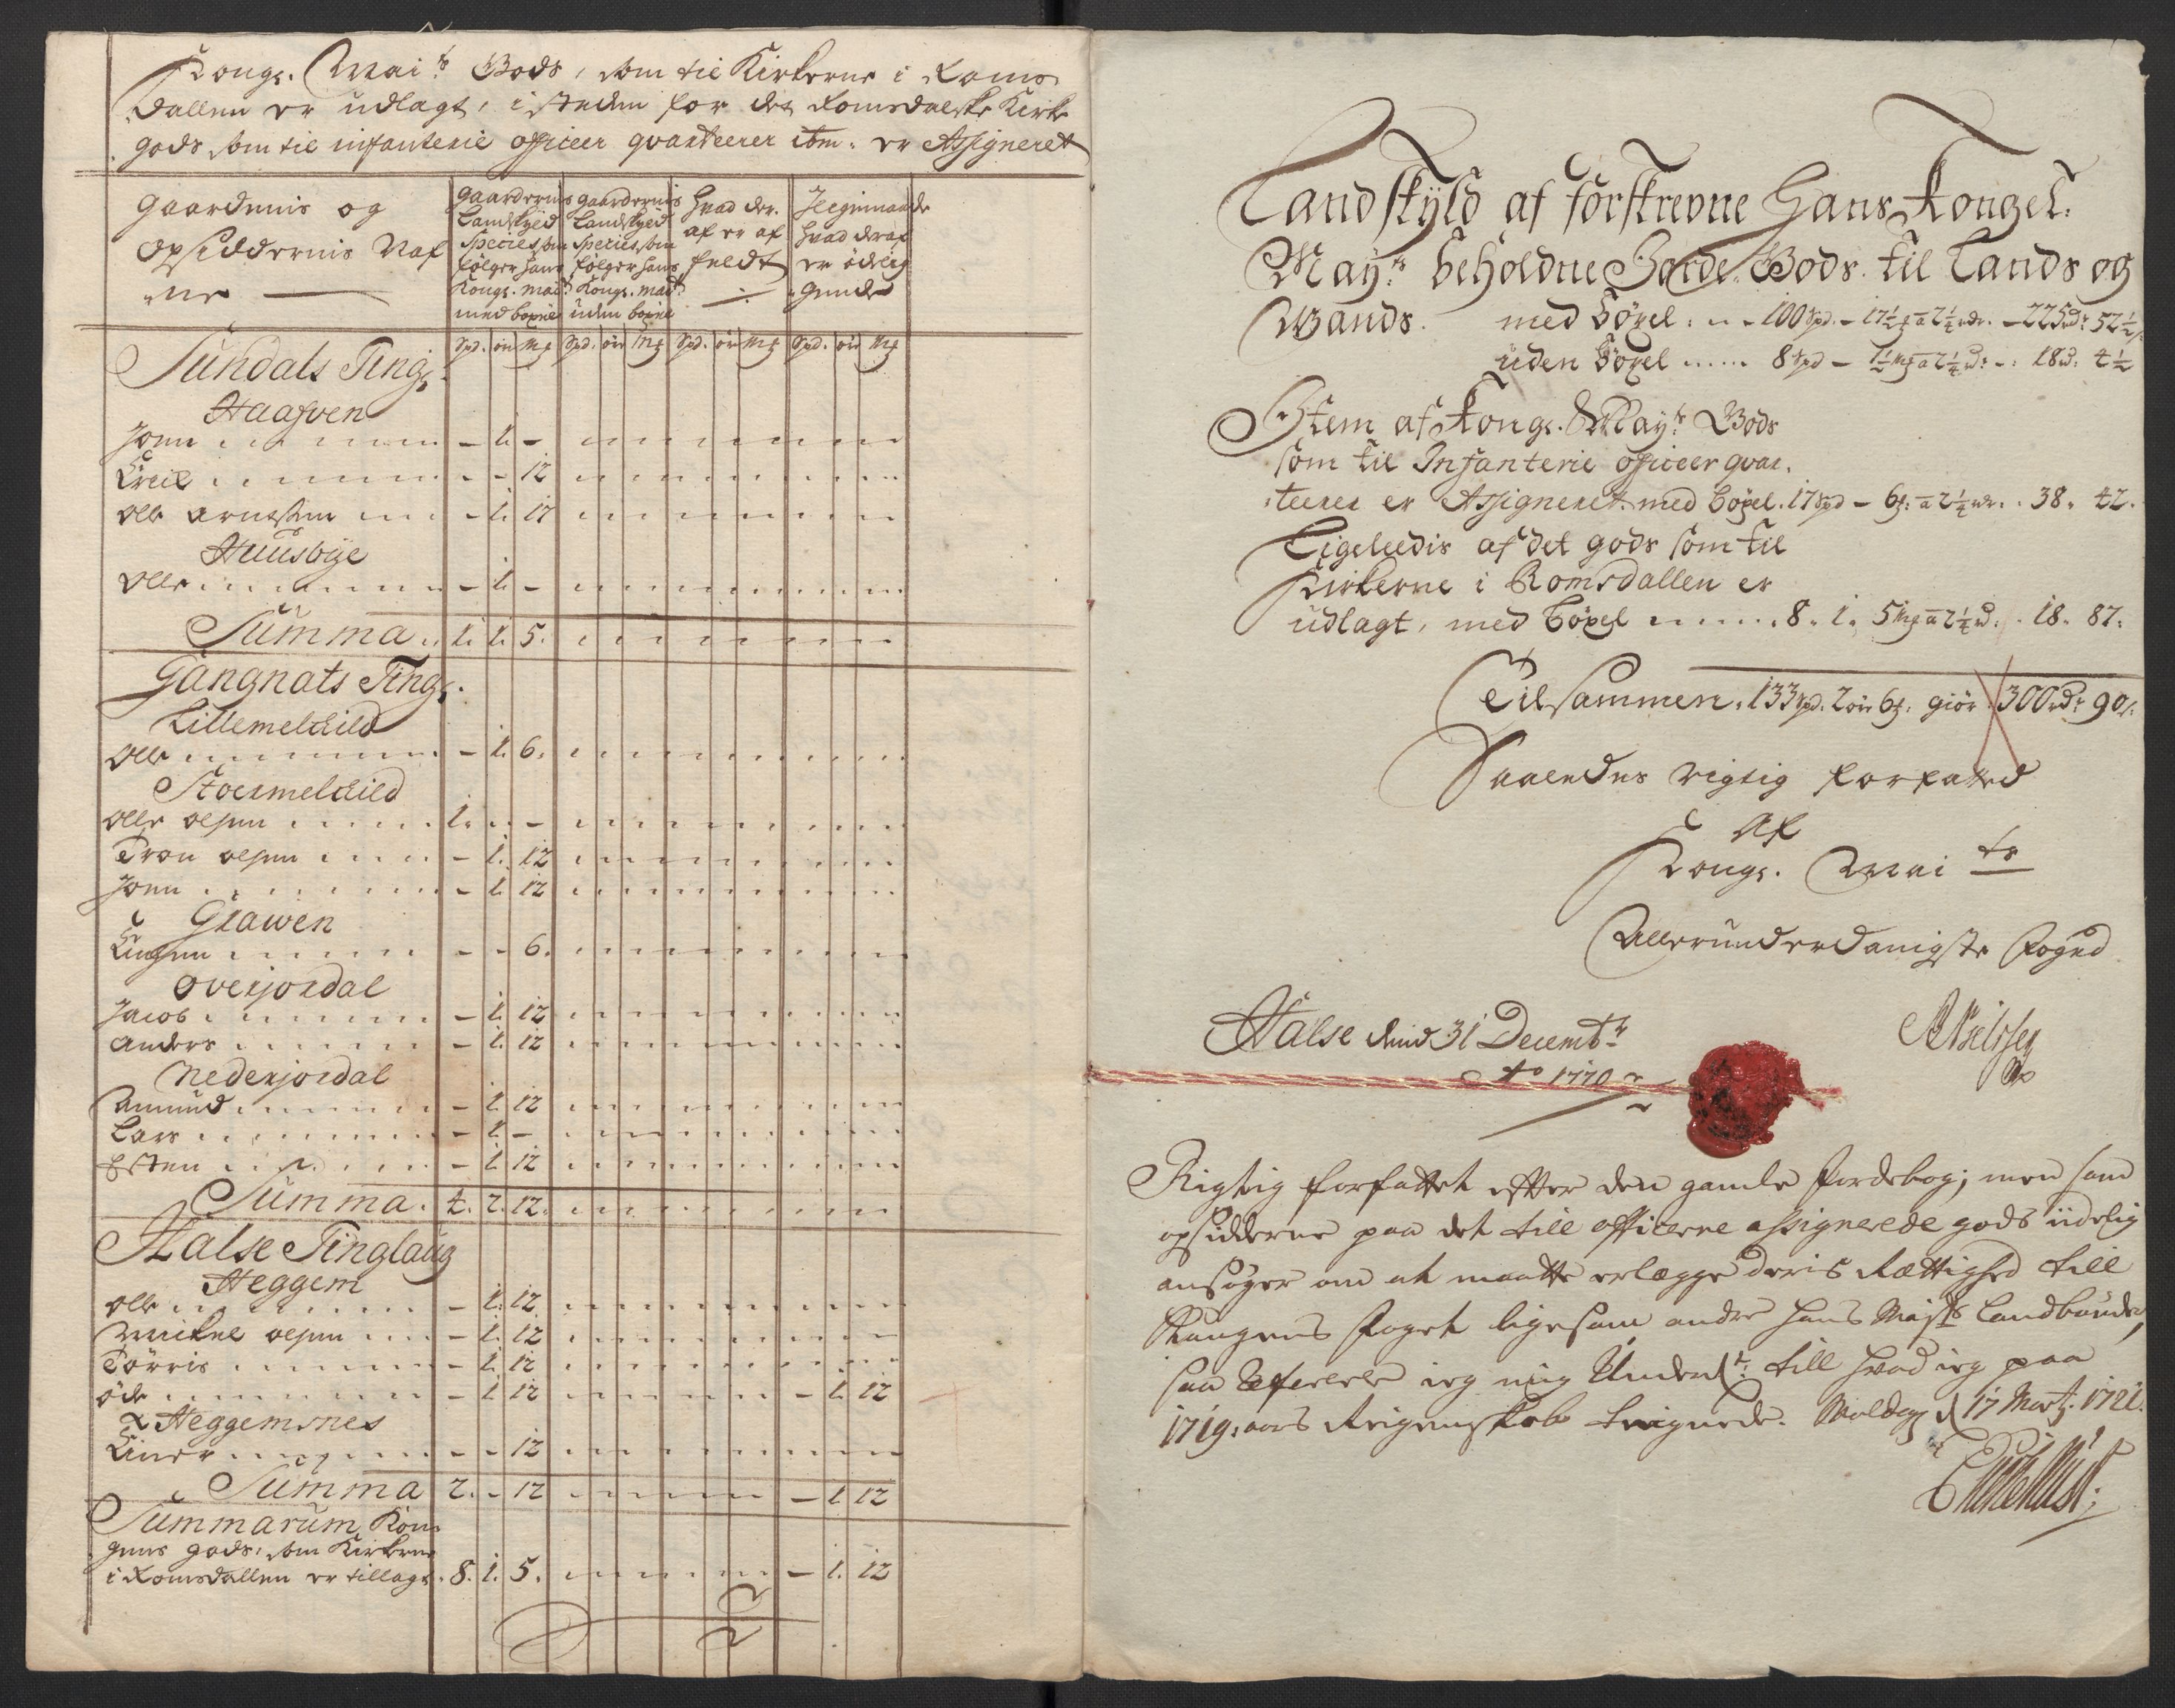 Kongs. Mai:ts Gods, som til Kirkerne i Roms
dallen er udlagt, i steden for det Romsdalske Kirke
gods som til infanterie officeer qvarteerer itm. er Assigneret
Gaardenis og
Opsiddernis Naf
ne
Gaardernis
Landskyld
Species som
følger hans
Kongs. Mait
med böxel
Gaardernis
Landskyld
Species som
følger hans
Kongs. Mait
uden böxel
Hvad der
af er af
feldt
÷
hvad deraf
er ödelig
gende
Spd. ör Mk Spd. ör Mk Spd. ör Mk Spd. ör Mk
Sundals Ting.
Haafven
Jonn - 1. -
Erick - - 12
Olle Arnesen - 1. 17
Huusbye
Olle - 1. -
Summa 1. 1. 5.
Gangnats Ting.
Lillemeldild
Olle - 1. 6.
Stoermeldild
Olle Olsen 1. - -
Tron Olsen - 1. 12
Jonn - 1. 12
Grawen
- - 6.
Overjordal
Jacob - 1. 12
Anders - 1. 12
Nederjordal
Amund - 1. 12
Lars - 1. -
Esten - 1. 12
Summa. 4. 2. 12.
Halse Tinglaug
Heggem
Olle - 1. 12
Mickel Olsen - 1. 12
Törris - 1. 12
öde - 1. 12 - 1. 12
Heggemsnes
Einer - - 12
Summa 2. - 12 - 1. 12
Summarum Kon
gens gods, som Kirkerne
i Romsdallen er tillagt. 8. 1. 5. - 1. 12
Landskyld af forskrevne Hans Kongel:
May:ts beholdne Jorde Gods til Lands og
Wands. med böxel: 100 Spd. - 17½ mk a 2¼ rdr. - 225 rdr 52½ s
uden böxel 8 Spd - 1½ mk a 2¼ rd: - 18 rd: 4½
Item af Kongs. May:ts Gods
som til Infanterie officeer qvar-
teerer er Assigneret med böxel. 17 Spd - 6 mk: a 2¼ rdr. 38. 42.
Ligeledis af det gods som til
Kirkerne i Romsdallen er
udlagt, med böxel 8. 1. 5 mk a 2¼ rd. 18. 87.
Tilsammen. 133 Spd. 2 ör 6 mk: giör 300 rdr 90 s:
Saaledes rigtig forfatted
Af
Kongs. Mai ts
Allerunderdanigste Foged
Halse dend 31 Decembr
Ao 1720
Rigtig forfattet efter den gamle Jordebog; men som
opsidderne paa det till officerne assignerede gods üdelig
ansøger om at maatte erlægge deris Rættighed till
Kongens foget ligesom andre hans Majts Landbønder,
saa Refererer ieg mig Underd: till hvad ieg paa
1719: aars Reigenskab teignede. d 17 Martj. 1721.